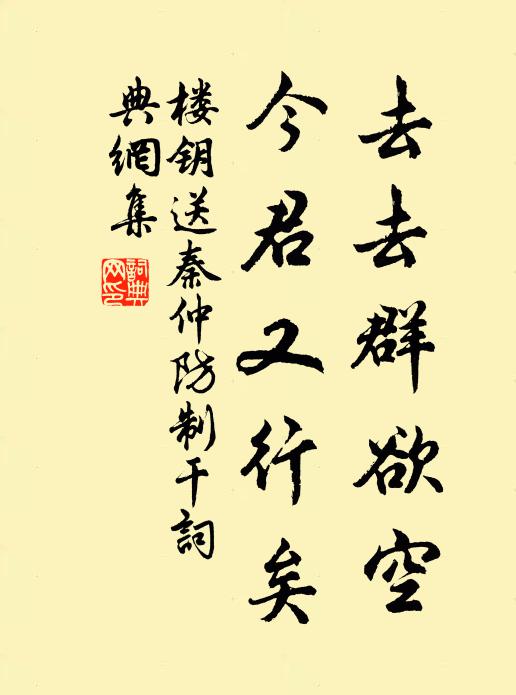 去去群欲空
今君又行矣
楼钥送秦仲防制干詞
典網集
詞典網印